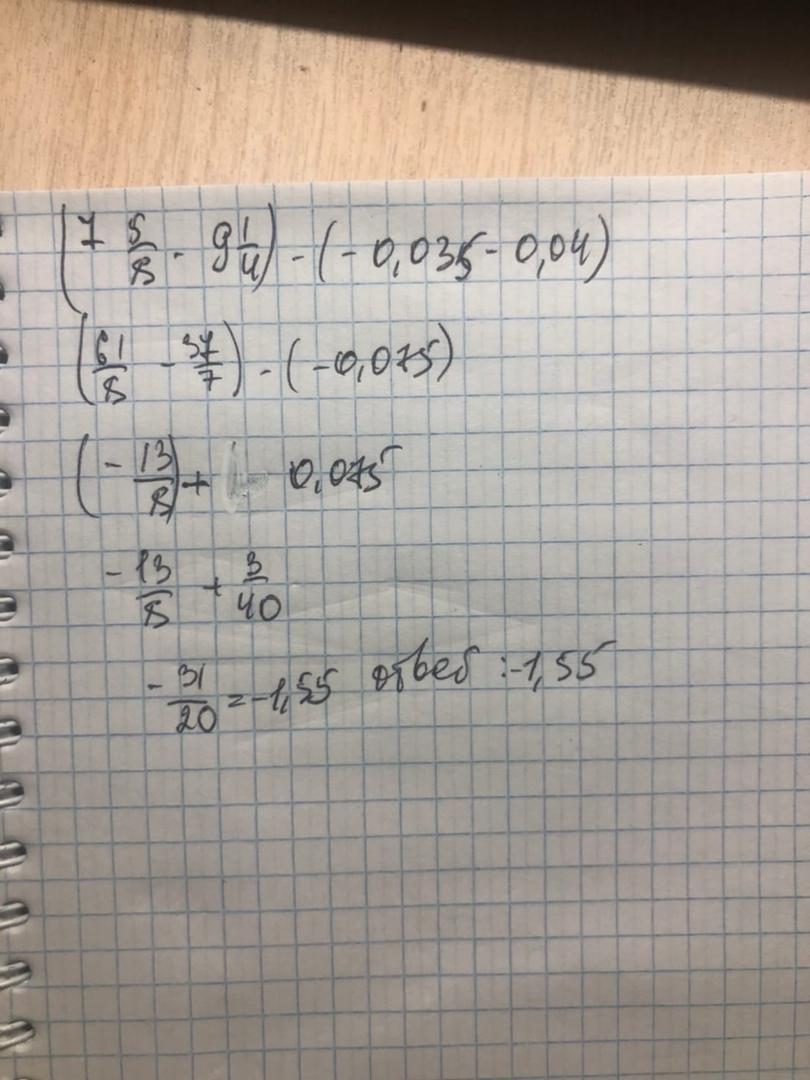 (7 5/8 - 9 1/4) - (-0,035 - 0,04)
(61/8 - 37/7) - (-0,075)
(-13/8) + 0,075
-13/8 + 3/40
-31/20 = -1,55 ответ :-1,55